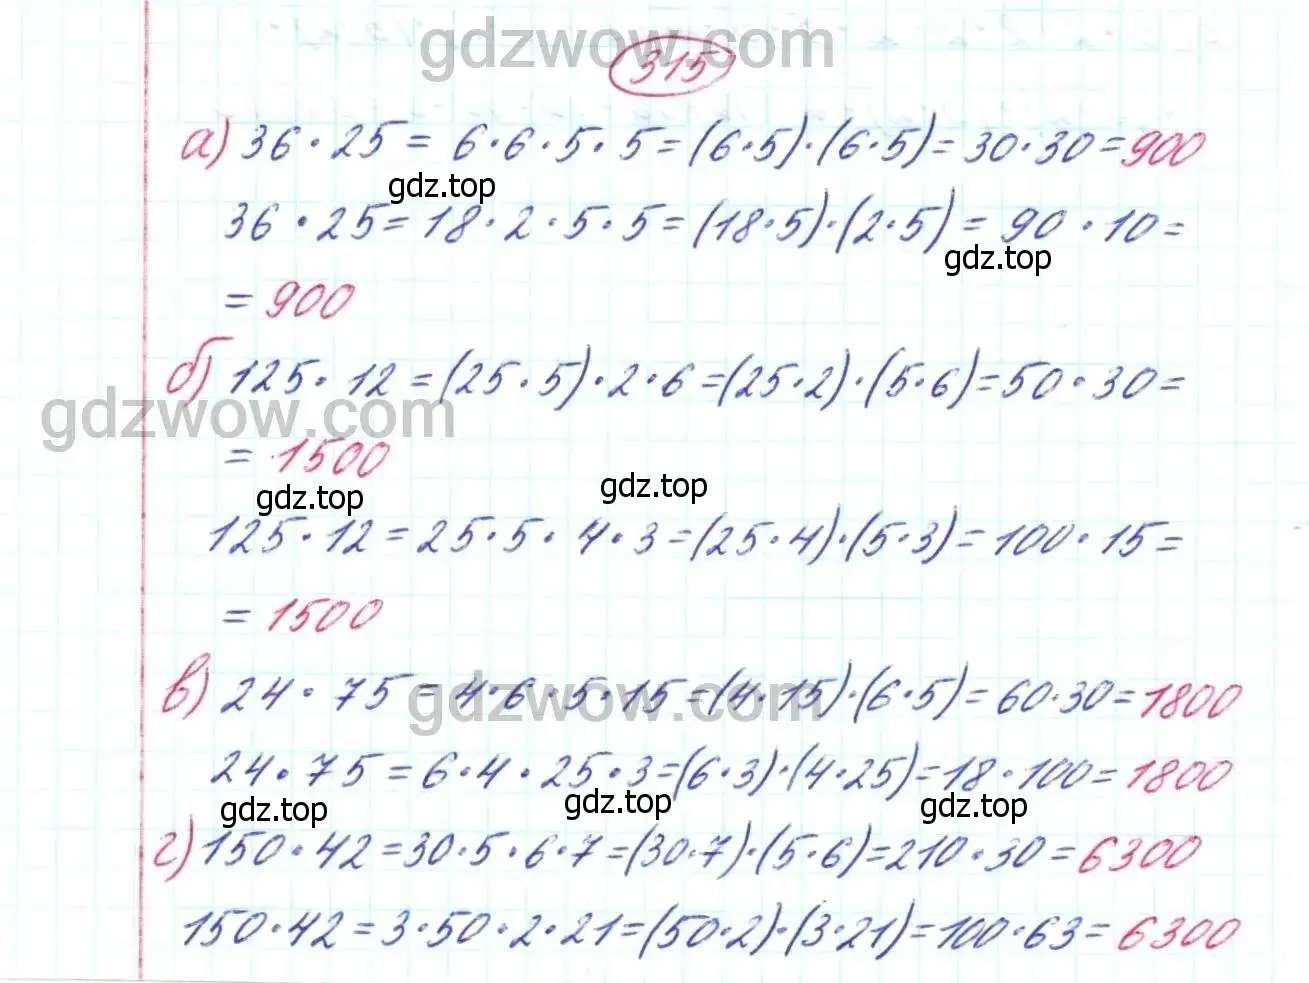 gdzwow.com
315
а) 36 · 25 = 6 · 6 · 5 · 5 = (6 · 5) · (6 · 5) = 30 · 30 = 900
gdz.top
36 · 25 = 18 · 2 · 5 · 5 = (18 · 5) · (2 · 5) = 90 · 10 =
gdz.top
= 900
б) 125 · 12 = (25 · 5) · 2 · 6 = (25 · 2) · (5 · 6) = 50 · 30 =
gdzwow.com
= 1500
gdz.top gdz.top
125 · 12 = 25 · 5 · 4 · 3 = (25 · 4) · (5 · 3) = 100 · 15 =
= 1500
в) 24 · 75 = 4 · 6 · 5 · 15 = (4 · 15) · (6 · 5) = 60 · 30 = 1800
gdzwow.com
24 · 75 = 6 · 4 · 25 · 3 = (6 · 3) · (4 · 25) = 18 · 100 = 1800
gdz.top gdz.top gdz.top
г) 150 · 42 = 30 · 5 · 6 · 7 = (30 · 7) · (5 · 6) = 210 · 30 = 6300
150 · 42 = 3 · 50 · 2 · 21 = (50 · 2) · (3 · 21) = 100 · 63 = 6300